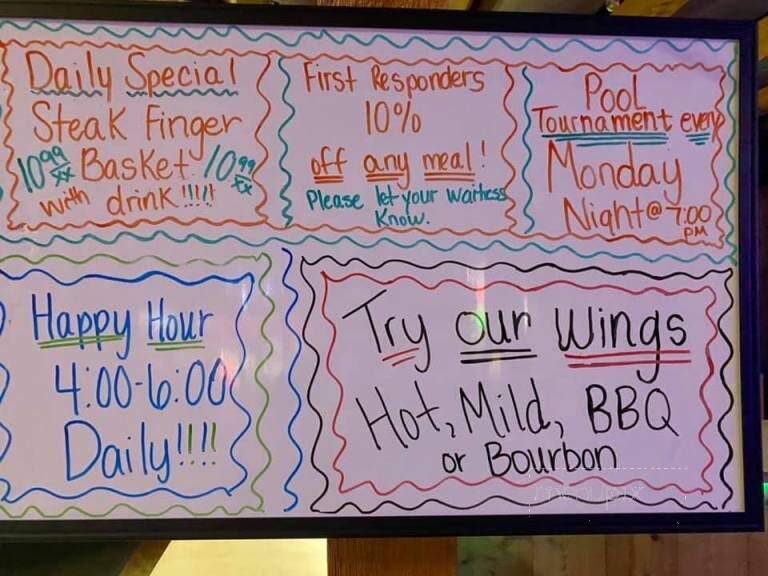 Daily Special
Steak Finger
10.99 Basket 10.99
with drink!!!!!
First Responders
10%
off any meal!
Please let your waitress
Know.
Pool
Tournament every
Monday
Night@7:00
PM
Happy Hour
4:00-6:00
Daily!!!!
Try our Wings
Hot, Mild, BBQ
or Bourbon
menupix